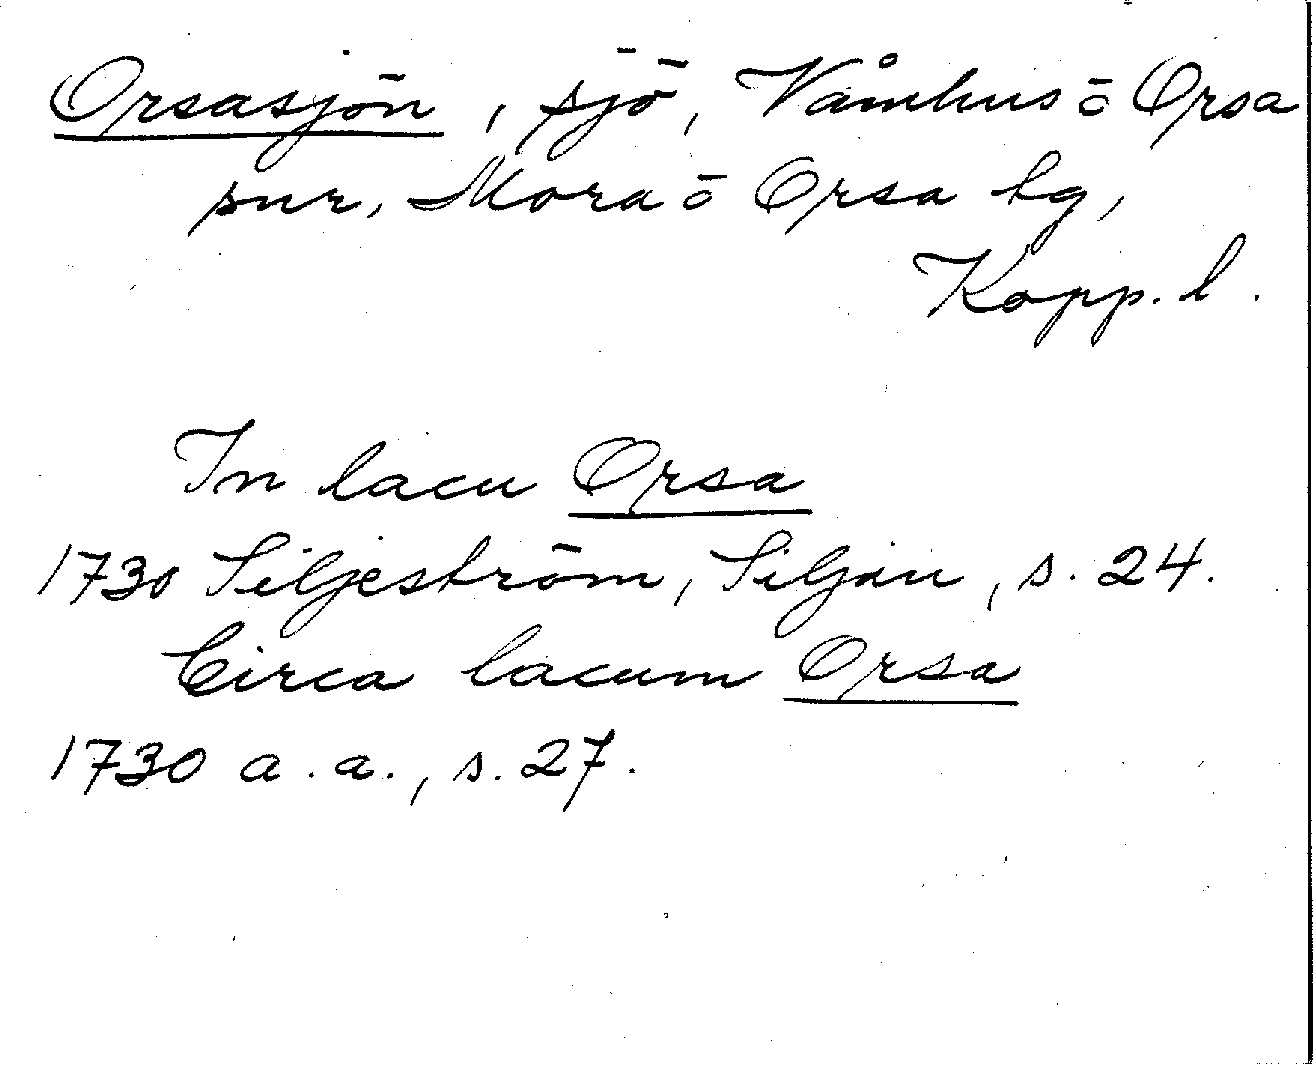 Orsasjön, sjö, Våmhus ō Orsa
snr, Mora ō Orsa tg,
Kopp. l.
In lacu Orsa
1730 Siljeström, Siljan, s. 24.
Circa lacum Orsa
1730 a. a., s. 27.